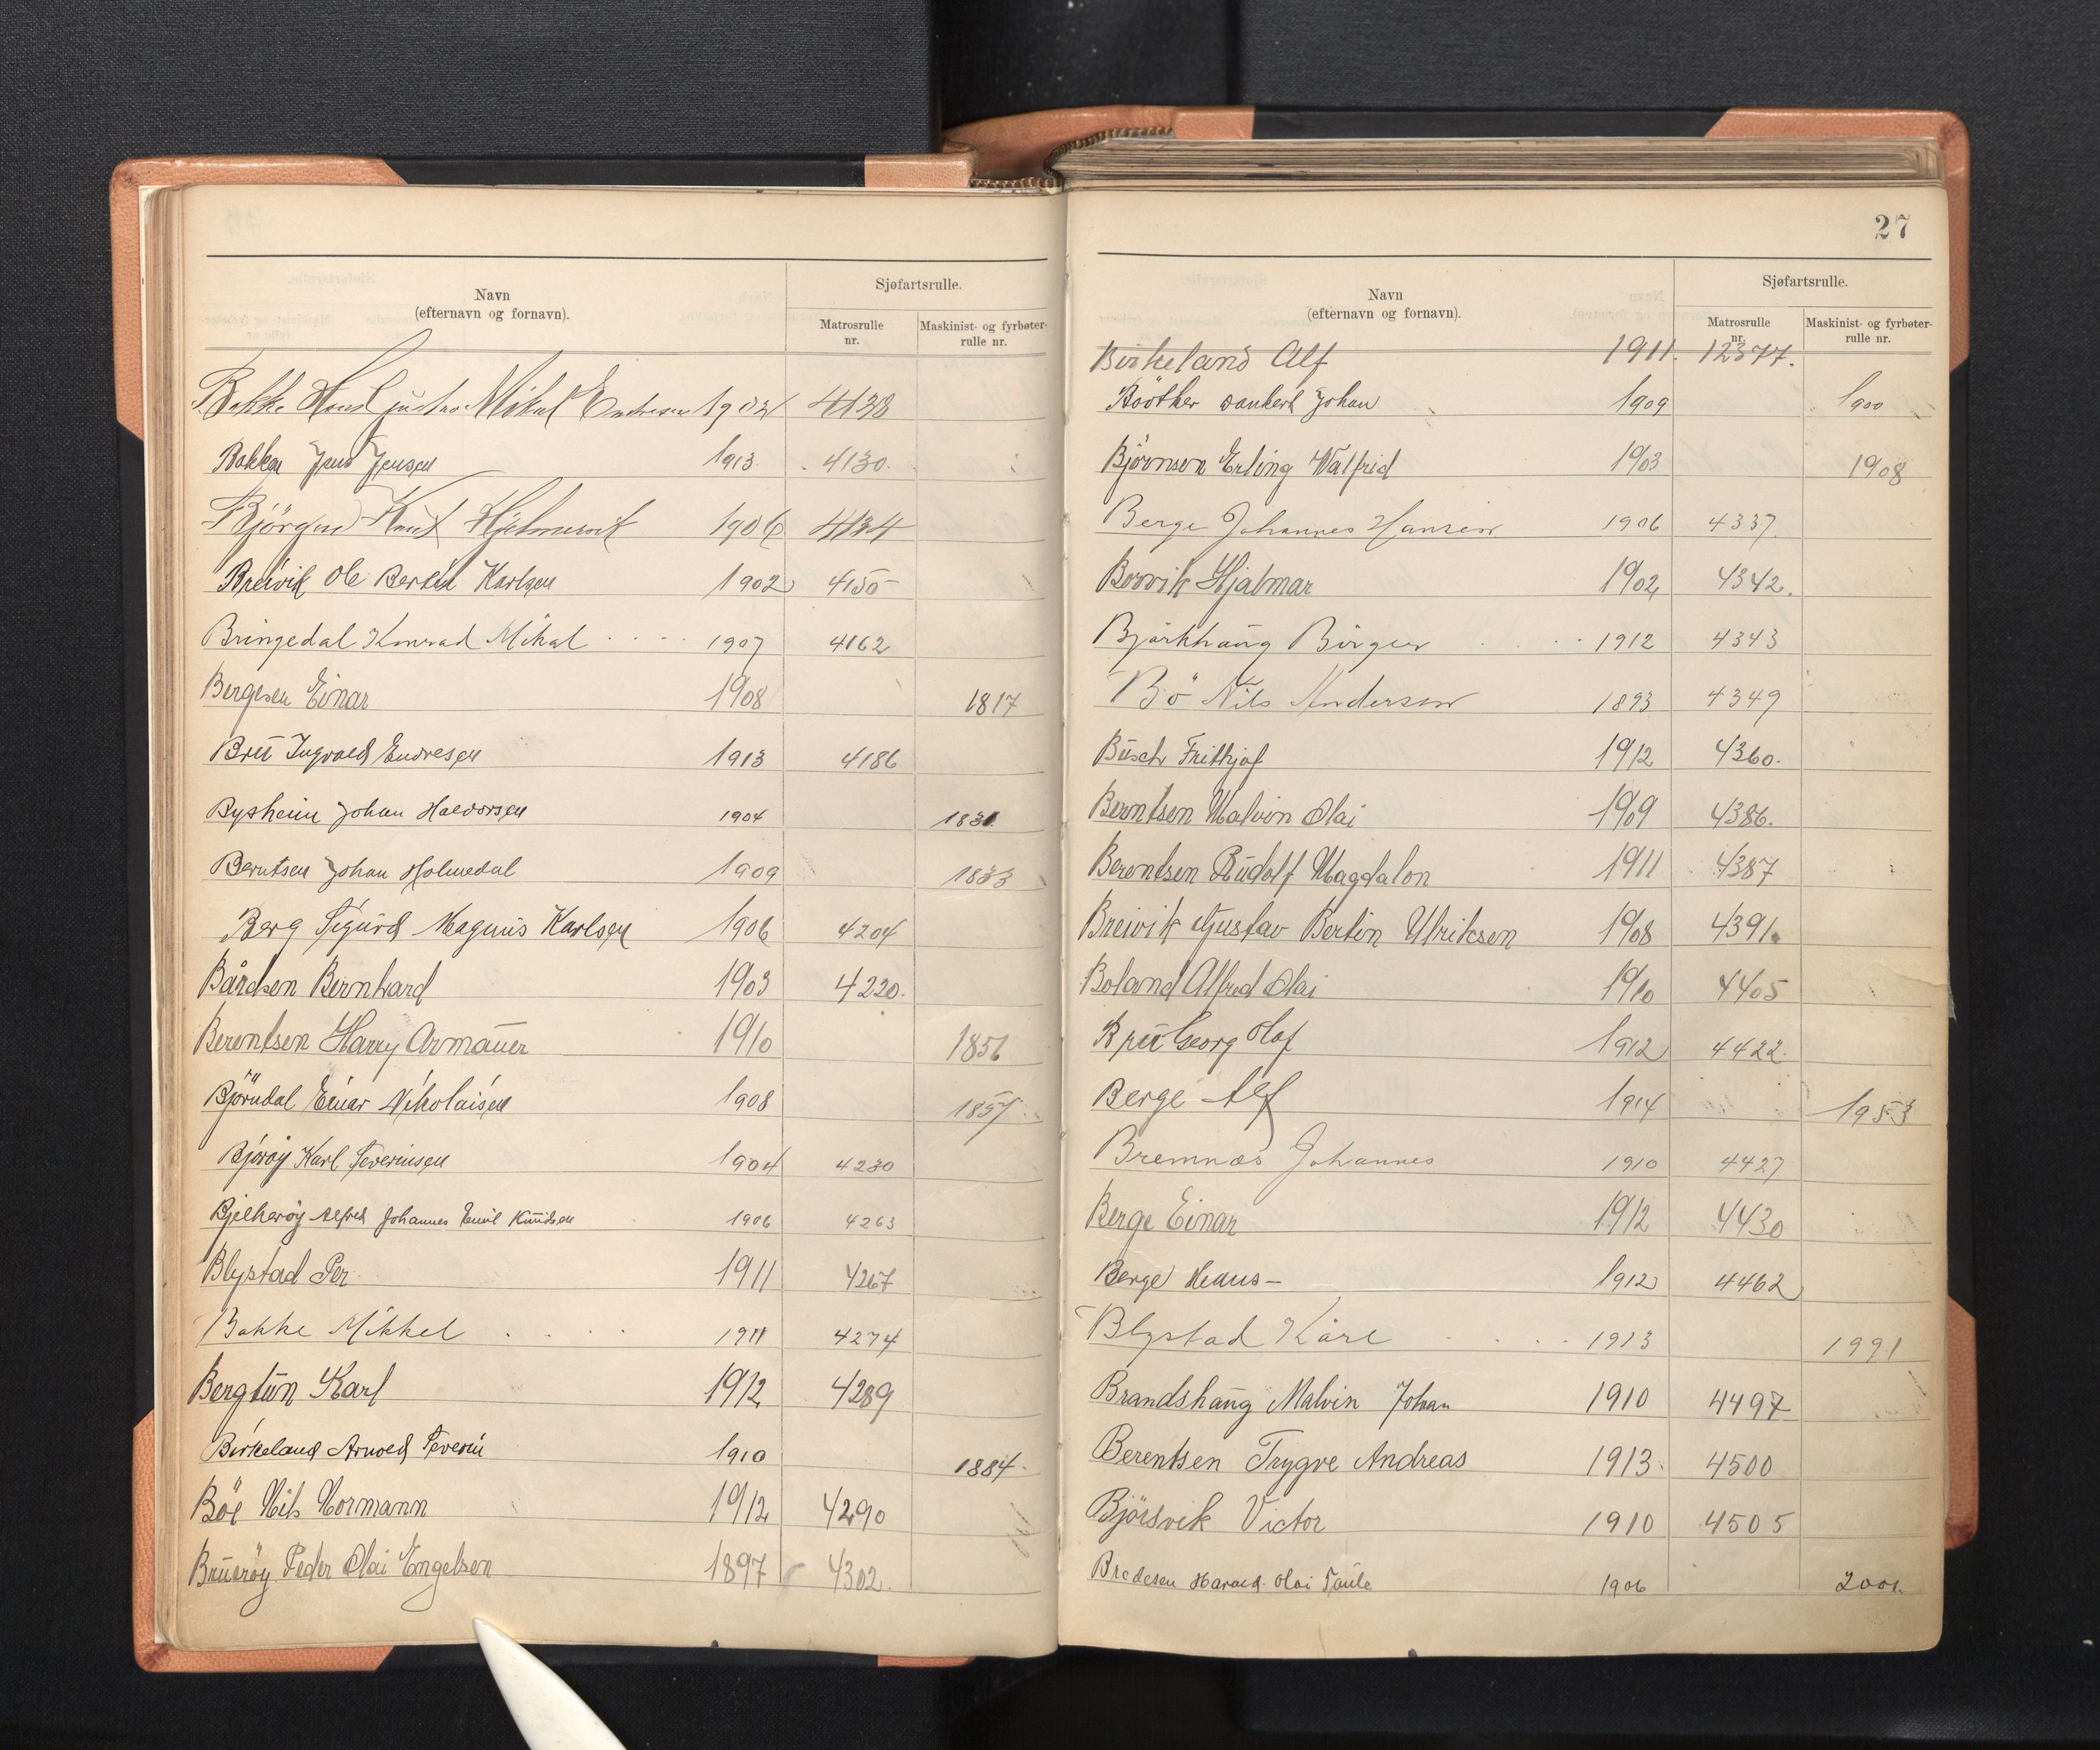 Sjøfartsrulle.
Navn
(efternavn og fornavn).
Matrosrulle
nr.
Maskinist- og fyrbøter-
rulle nr.
Bakke Hans Gustav Mikal Endresen 1902 4138
Bakken Jens Jensen 1913 4130.
Björgen Knut Hjelmervik 1906 4134
Breivik Ole Bertin Karlsen 1902 4150
Bringedal Konrad Mikal 1907 4162
Bergesen Einar 1908 1817
Bru Ingvald Endresen 1913 4186
Bysheim Johan Halvorsen 1904 1831
Berntsen Johan Holmedal 1909 1833
Berg Sigurd Magnus Karlsen 1906 4204
Bårdsen Bernhard 1903 4220.
Berentsen Harry Armauer 1910 1856
Björndal Einar Nikolaisen 1908 1857
Björøy Karl Severinsen 1904 4230
Bjelkarøy Alfred Johannes Emil Knudsen 1906 4263
Blystad Per 1911 4267
Bakke Mikkel 1911 4274
Bergtun Karl 1912 4289
Birkeland Arnold Severin 1910 1884
Böe Nils Normann 1912 4290
Bruarøy Peder Olai Engelsen 1897 4302
27
Sjøfartsrulle.
Navn
(efternavn og fornavn).
Matrosrulle
nr.
Maskinist- og fyrbøter-
rulle nr.
Birkeland Alf 1911. 12377.
Böother Dankert Johan 1909 1900
Björnsen Erling Valfrid 1903 1908
Berge Johannes Hansen 1906 4337.
Borvik Hjalmar 1902 4342.
Bjørkhaug Birger 1912 4343
Bö Nils Andersen 1893 4349
Busch Frithjof 1912 4360.
Berntsen Malvin Olai 1909 4386.
Berentsen Rudolf Magdalon 1911 4387
Breivik Gustav Bertin Ulriksen 1908 4391.
Boland Alfred Olai 1910 4405
Bru Georg Olaf 1912 4422
Berge Alf 1914 1953
Bremnæs Johannes 1910 4427
Berge Einar 1912 4430
Berge Hans – 1912 4462
Blystad Kåre 1913 1991
Brandshaug Malvin Johan 1910 4497
Berentsen Trygve Andreas 1913. 4500
Björsvik Victor 1910 4505
Bredesen Harald Olai Paule 1906 2001.